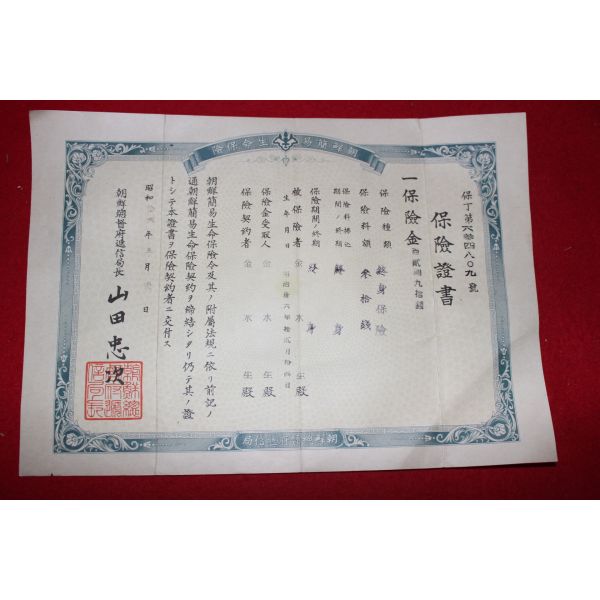 朝鮮簡易生命保險
保險證書
保丁第六參四八〇九號
一保險金百貳圓九拾錢
保險種類 終身保險
保險料額 參拾錢
保險料拂込期間ノ終期 終身
保險期間ノ終期 終身
被保險者 金水生殿
生年月日 明治卅六年拾貳月拾四日
保險金受取人 金水生殿
保險契約者 金水生殿
朝鮮簡易生命保險令及其ノ附屬法規ニ依リ前記ノ
通朝鮮簡易生命保險契約ヲ締結シタリ仍テ其ノ證
トシテ本證書ヲ保險契約者ニ交付ス
昭和 年 月 日
朝鮮總督府遞信局長 山田忠次
朝鮮總督府遞信局